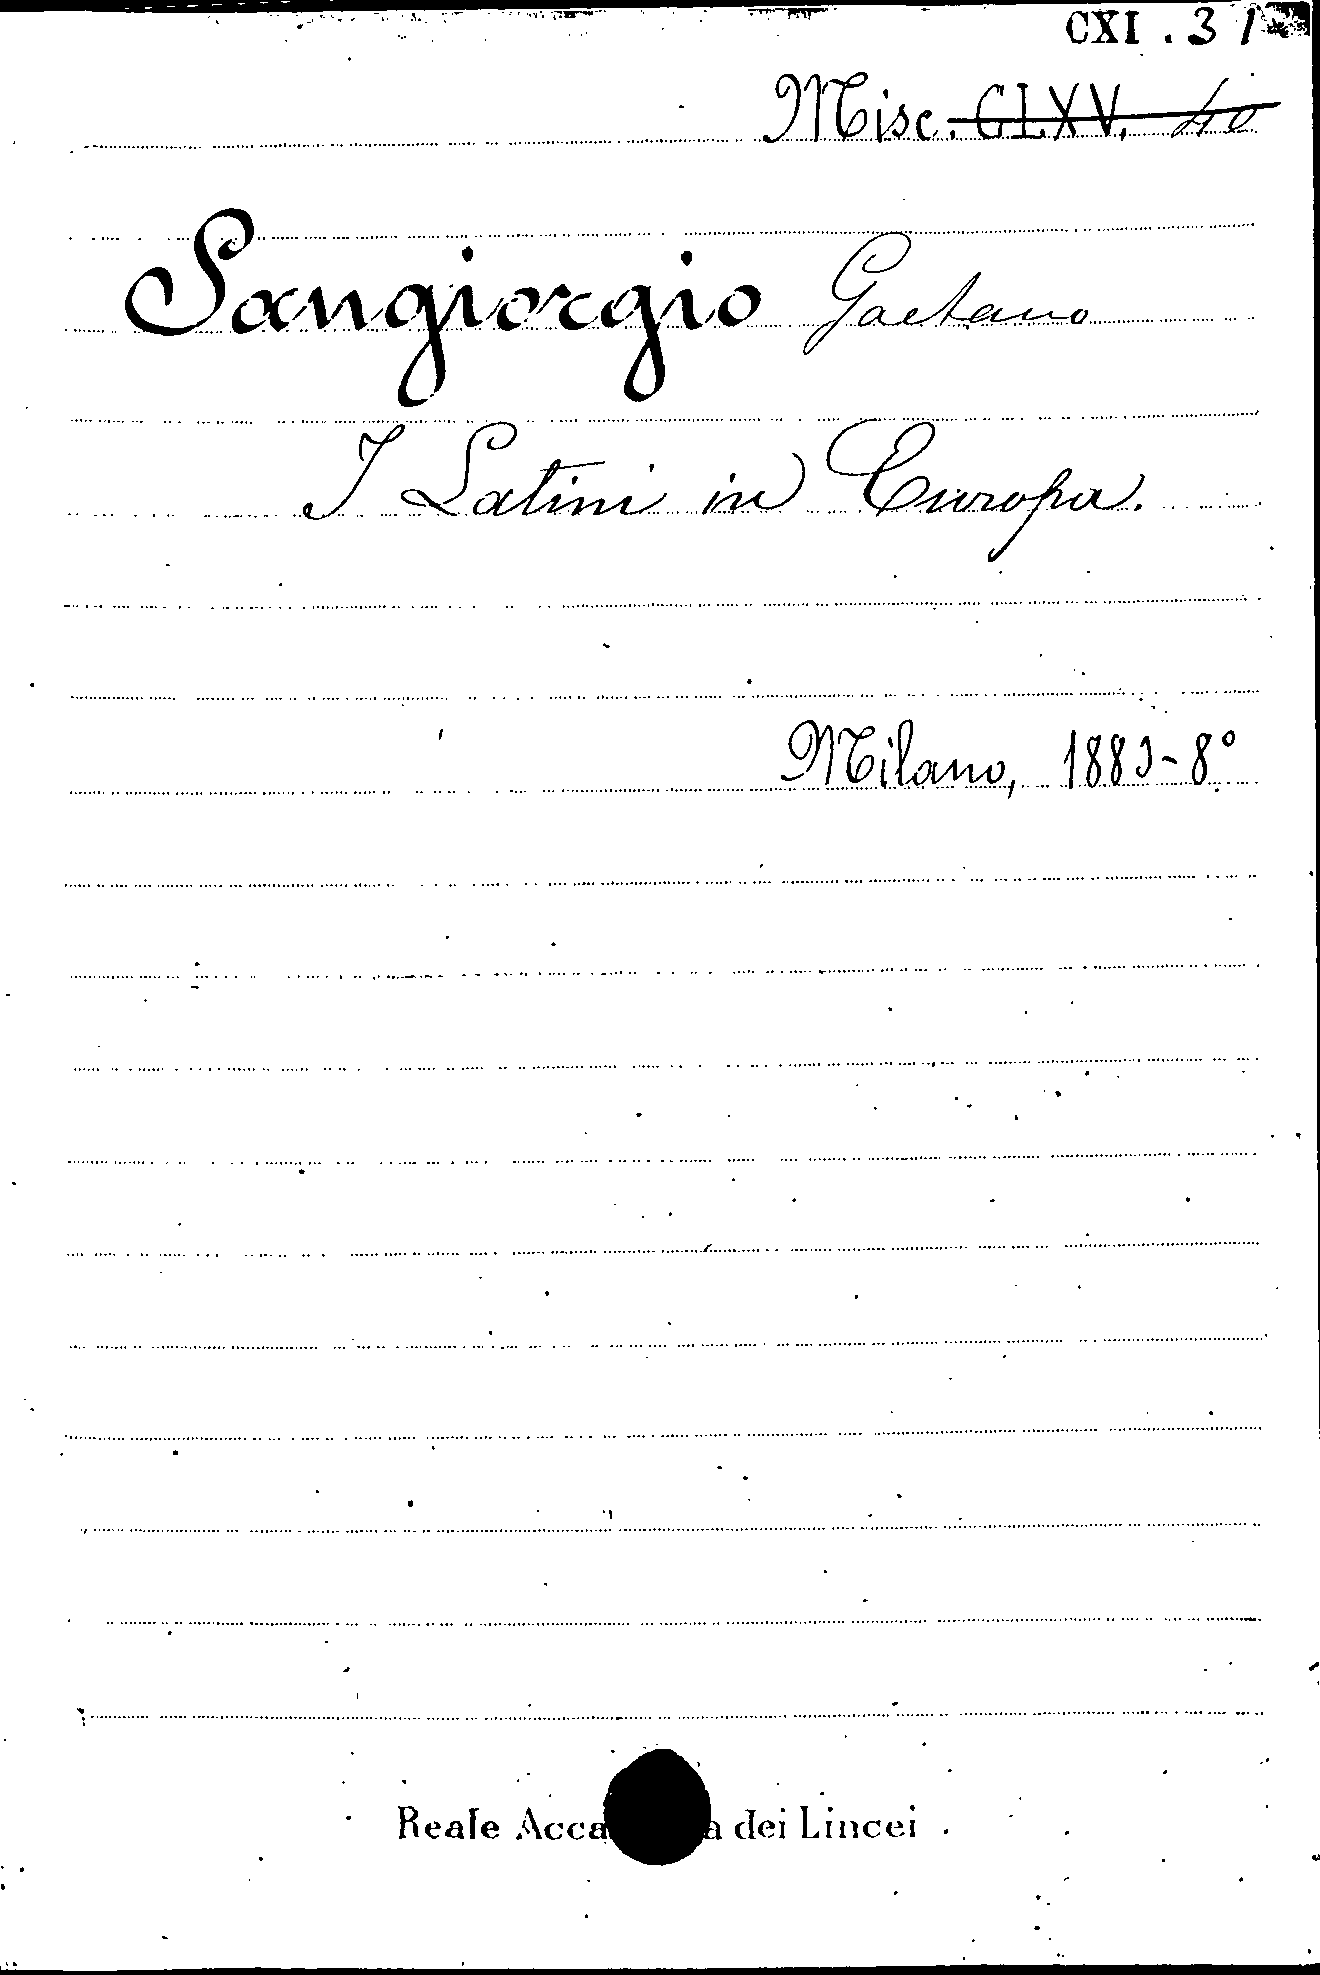 CXI . 31
Misc. CLXV. 40
Sangiorgio Gaetano
I Latini in Europa.
Milano, 1883-8°
Reale Acca a dei Lincei